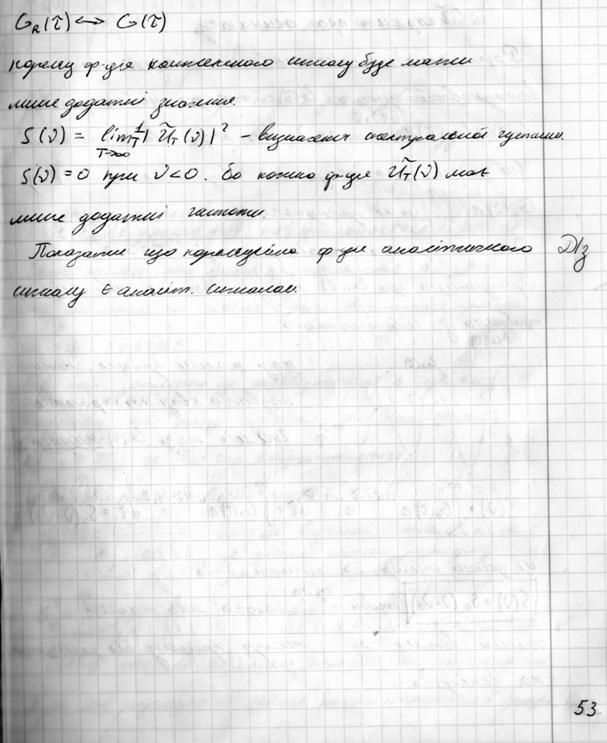 G_R(τ) ↔ G(τ)
кореляц ф-ція комплексного сигналу буде мати
лише додатні значення.
S(ν) = lim_{T→∞} 1/T |Ũ_T(ν)|² – визначення спектральної густини.
S(ν) = 0 при ν < 0. Бо кожна ф-ція Ũ_T(ν) має
лише додатні частоти.
Показати що кореляційна ф-ція аналітичного Д/з
сигналу є аналіт. сигналом.
53